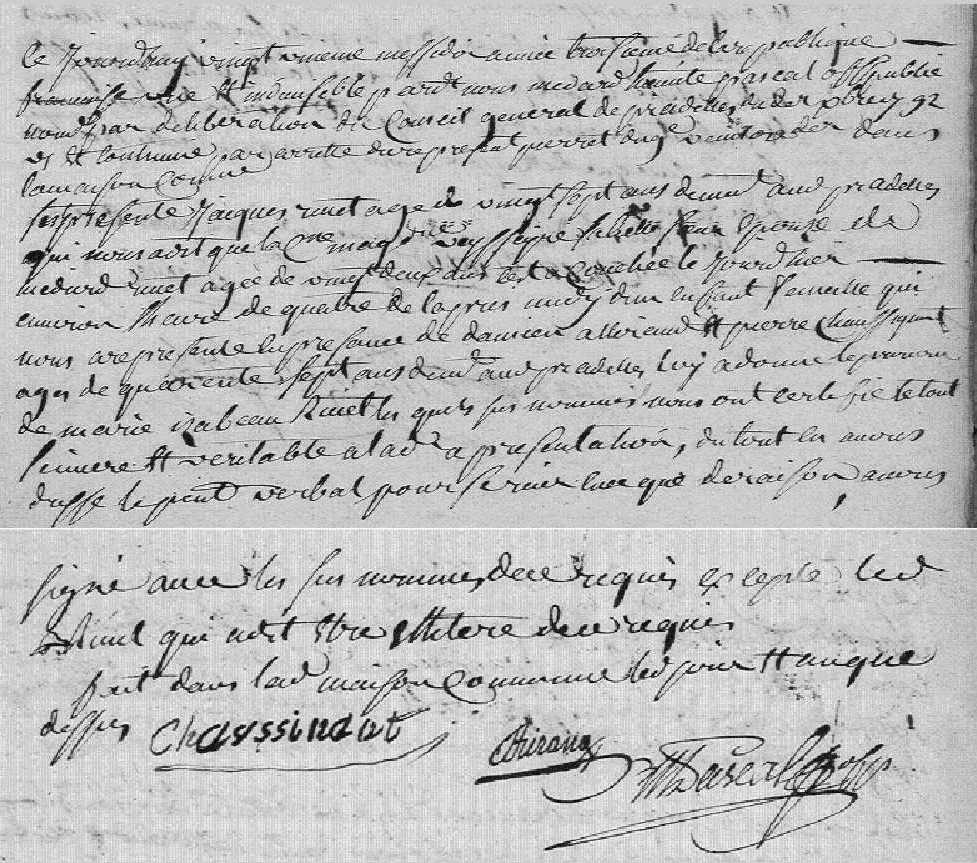 Ce Jourdhuy vingt unieme messidor année troisieme de la republique
francoise une et indivisible pardt nous medard hante pascal off publie
nomé par deliberation du Conseil general de pradelles du der xbre 1792
et Continué par arretté du represent pierret du 9e ventose der dans
la maison Comune
sest presenté Jacques rinet agé de vingt sept ans demt aud pradelles
qui nous a dit que la Cne magd veysseigre fillette son Epouse et de
medard rinet agée de vingt deux ans est acouchée le Jourdhier
environ lheure de quatre de lapres midy dun enfant femelle qui
nous a represente en presance de damien allirand et pierre Chaussignat
ages de quarente sept ans demt aud pradelles luy a donné le prenom
de marie izabeau Rinet les quels sus nommés nous ont certiffié le tout
sinnere et veritable a lad a presentation, du tout en avons
dressé le pnt verbal pour servir ce que de raison avons
signé avec les sus nommés de ce requis exepté led
Rinet qui a dit etre illitere de ce requis
fait dans lad maison Commune led jour et an que
dessus Chaussindat
Alirand
M H Pascal off p